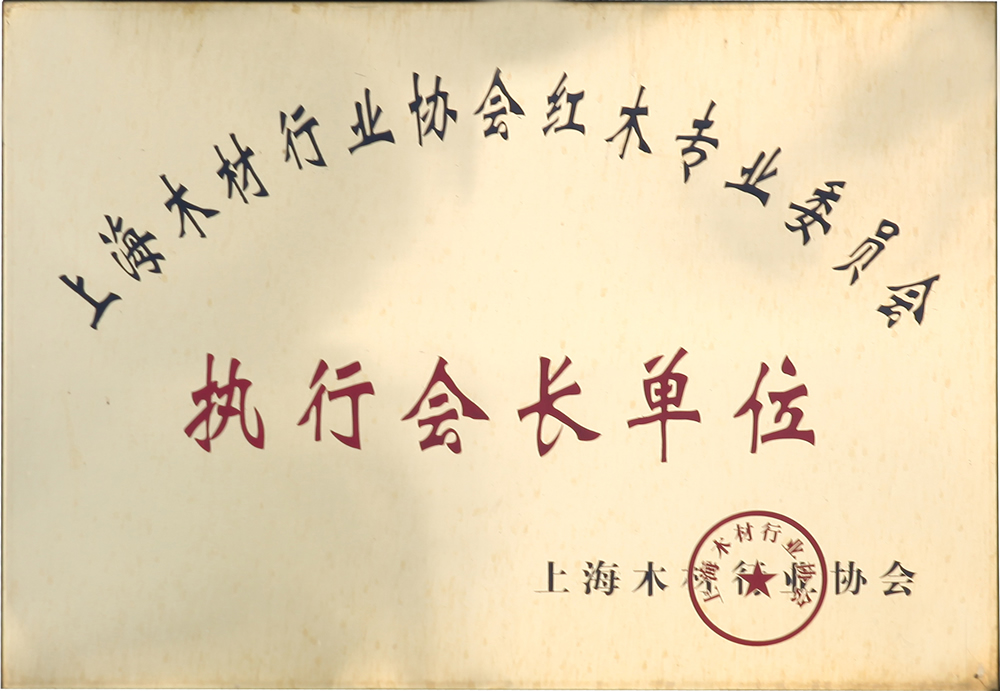 上海木材行业协会红木专业委员会
执行会长单位
上海木材行业协会
上海木材行业协会